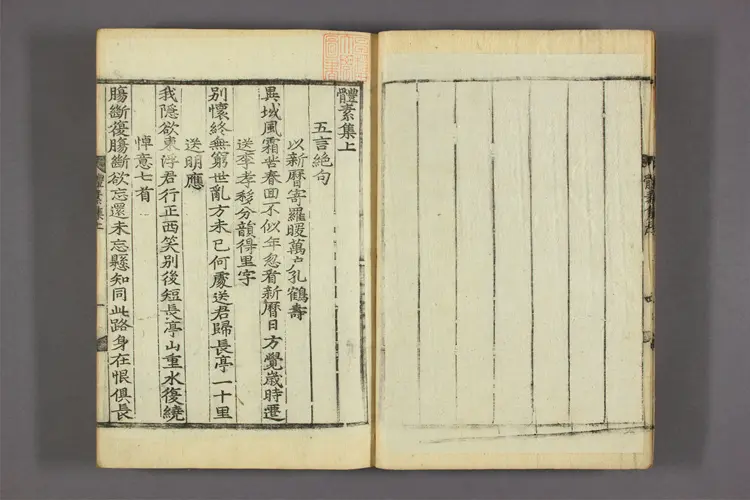 體素集上
五言絶句
以新曆寄羅暖萬戶孔鶴壽
異域風霜苦春回不似年忽看新曆日方覺歲時遷
送李孝移分韻得里字
別懷終無窮世亂方未已何處送君歸長亭一十里
送明應
我隱欲東浮君行正西笑別後短長亭山重水復繞
悼意七首
膓斷復膓斷欲忘還未忘懸知同此路身在恨俱長
體素集上